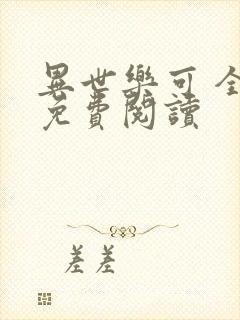 異世樂可全
免費閱讀
差差